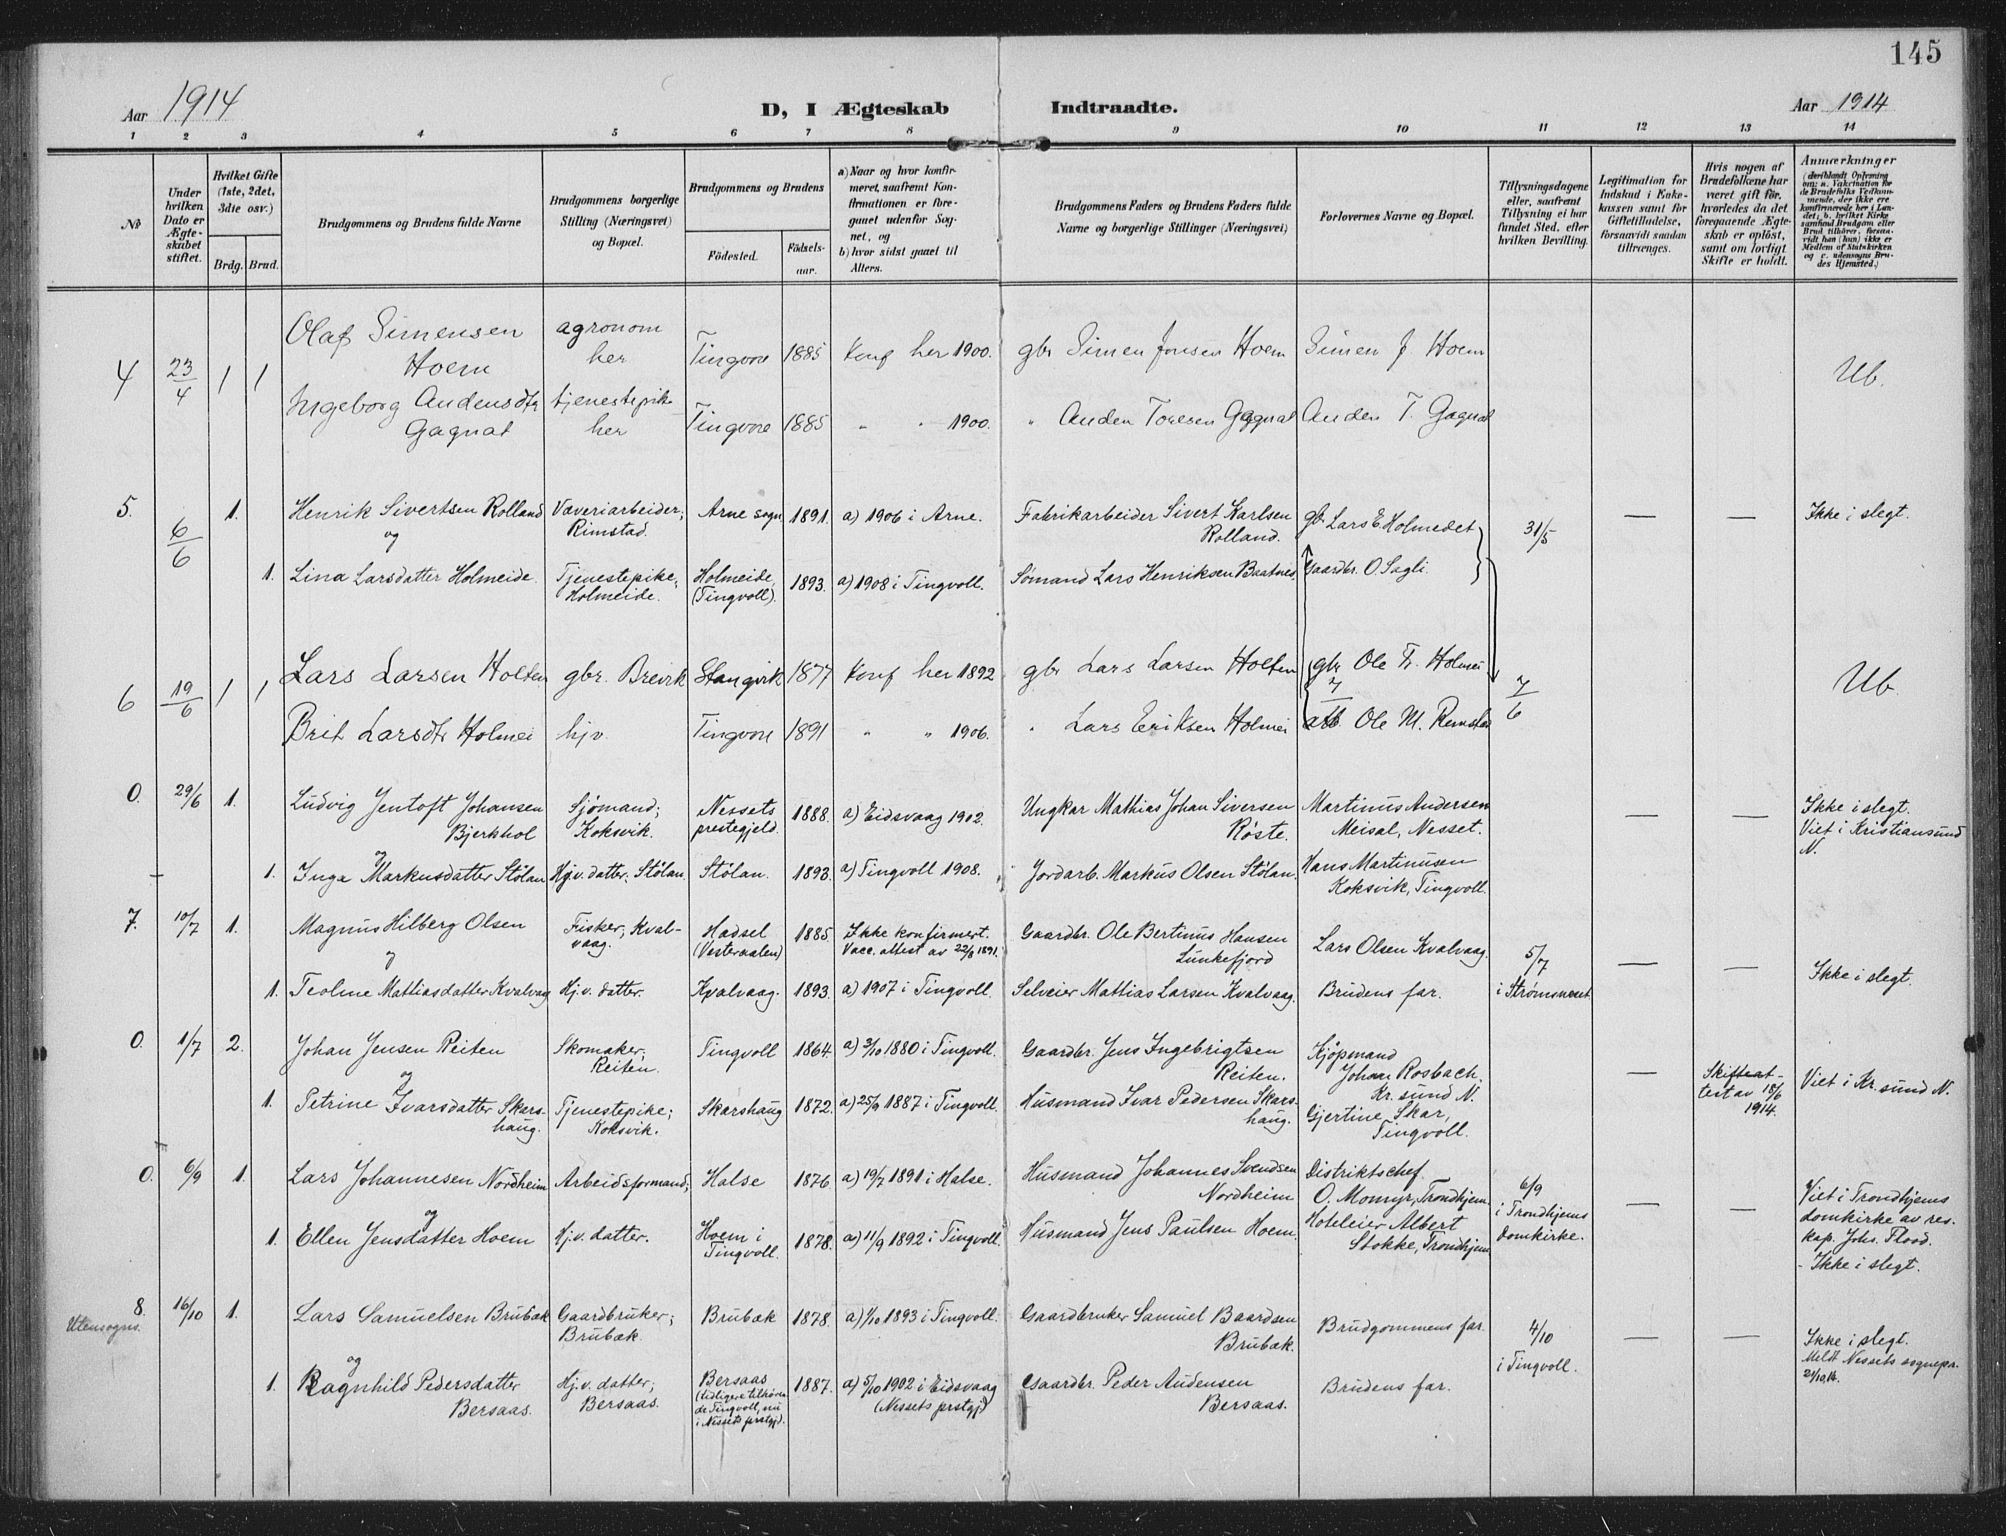 145
Aar 1914
D, I Ægteskab Indtraadte.
Aar 1914
1 2 3 4 5 6 7 8 9 10 11 12 13 14
No
Under hvilken Dato er Ægte-skabet stiftet.
Hvilket Gifte (1ste, 2det, 3die osv.)
Brdg. Brud.
Brudgommens og Brudens fulde Navne
Brudgommens borgerlige Stilling (Næringsvei) og Bopæl.
Brudgommens og Brudens
Fødested.
Fødsels-aar.
a) Naar og hvor konfir-meret, saafremt Kon-firmationen er fore-gaaet udenfor Sog-net, og
b) hvor sidst gaaet til Alters.
Brudgommens Faders og Brudens Faders fulde Navne og borgerlige Stillinger (Næringsvei)
Forlovernes Navne og Bopæl.
Tillysningsdagene eller, saafremt Tillysning ei har fundet Sted, efter hvilken Bevilling.
Legitimation for Indskud i Enke-kassen samt for Giftetilladelse, forsaavidt saadan tiltrænges.
Hvis nogen af Brudefolkene har været gift før, hvorledes da det foregaaende Ægte-skab er opløst, samt om lovligt Skifte er holdt.
Anmærkninger
(deriblandt Oplysning om: a. Vakcination for de Brudefolks Vedkom-mende, der ikke ere konfirmerede her i Lan-det; b. hvilket Kirke-samfund Brudgom eller Brud tilhører, forsaa-vidt han (hun) ikke er Medlem af Statskirken og c. udensogns Bru-des Hjemsted.)
4 23/4 1 1 Olaf Simensen Hoem agronom her Tingvoll 1885 Konf her 1900. gbr Simen Jonsen Hoem Simen J. Hoem Ub.
Ingeborg Andensdtr Gagnat tjenestepike her Tingvoll 1885 " " 1900. " Anden Toresen Gagnat Anden T. Gagnat
5. 6/6 1. Henrik Sivertsen Rolland Væveriarbeider; Rimstad. Arne sogn 1891. a) 1906 i Arne. Fabrikarbeider Sivert Karlsen Rolland. gb. Lars E. Holmedet 31/5 — — Ikke i slegt.
og
1. Lina Larsdatter Holmeide. Tjenestepike; Holmeide. Holmeide, (Tingvoll). 1893. a) 1908 i Tingvoll. Sømand Lars Henriksen Baatnes. Gaardbr. O. Sagli.
6 19/6 1 1 Lars Larsen Holten gbr. Brevik Stangvik 1877 Konf her 1892 gbr Lars Larsen Holten gbr Ole Tr. Holmei 7/6 Ub.
Brit Larsdtr Holmei hjv. Tingvoll 1891 " " 1906. " Lars Eriksen Holmei Ole M. Remstad
0. 29/6 1. Ludvig Jentoft Johansen Bjerkhol Sjømand; Koksvik. Nessets prestegjeld. 1888. a) Eidsvaag 1902. Ungkar Mathias Johan Siversen Røste. Martinus Andersen Meisal, Nesset. — — Ikke i slegt. Viet i Kristiansund N.
og
1. Inga Markusdatter Stølan Hjv. datter; Stølan. Stølan. 1893. a) Tingvoll 1908. Jordarb. Markus Olsen Stølan. Hans Martinusen Koksvik, Tingvoll.
7. 10/7 1. Magnus Hilberg Olsen Fisker, Kval-vaag. Hadsel (Vesteraalen) 1885. Ikke konfirmert. Vacc. attest av 22/8 1891. Gaardbr. Ole Bertinus Hansen Lunkefjord Lars Olsen Kvalvaag. 5/7 i Strømsneset — — Ikke i slegt.
og
1. Teoline Mattiasdatter Kvalvaag Hj.v. datter. Kvalvaag. 1893. a) 1907 i Tingvoll. Selveier Mattias Larsen Kvalvaag. Brudens far.
0. 1/7 2. Johan Jensen Reiten Skomaker, Reiten. Tingvoll 1864. a) 3/10 1880 i Tingvoll. Gaardbr. Jens Ingebrigtsen Reiten. Kjøpmand Johan Rosbach, Kr.sund N. — Skifteat-test av 18/6 1914. Viet i Kr.sund N.
og
1. Petrine Ivarsdatter Skars-haug. Tjenestepike; Koksvik. Skarshaug 1872. a) 25/9 1887 i Tingvoll. Husmand Ivar Pedersen Skars-haug. Gjertine Skar, Tingvoll.
0. 6/9 1. Lars Johannesen Nordheim Arbeidsformand; Halse 1876 a) 19/7 1891 i Halse. Husmand Johannes Svendsen Nordheim Distriktschef O. Momyr, Trondhjem. 6/9 i Trondhjems domkirke. — — Viet i Trondhjems domkirke av res. kap. Johs. Flood. - Ikke i slegt.
og
1. Ellen Jensdatter Hoem Hj.v. datter. Hoem i Tingvoll. 1878. a) 11/9 1892 i Tingvoll. Husmand Jens Paulsen Hoem. Hoteleier Albert Stokke, Trondhjem
8. Utensogns. 16/10 1. Lars Samuelsen Brubæk Gaardbruker; Brubæk. Brubæk 1878. a) 1/10 1893 i Tingvoll. Gaardbruker Samuel Baardsen Brubæk. Brudgommens far. 4/10 i Tingvoll. — — Ikke i slegt. Meldt Nessets sognepr. 21/10.14.
og
1. Ragnhild Pedersdatter Bersaas. Hj.v. datter; Bersaas. Bersaas (tidligere tilhøren-de Tingvoll, nu i Nessets prstgj). 1887. a) 5/10 1902 i Eidsvaag (Nessets prstgj) Gaardbr. Peder Audensen Bersaas. Brudens far.